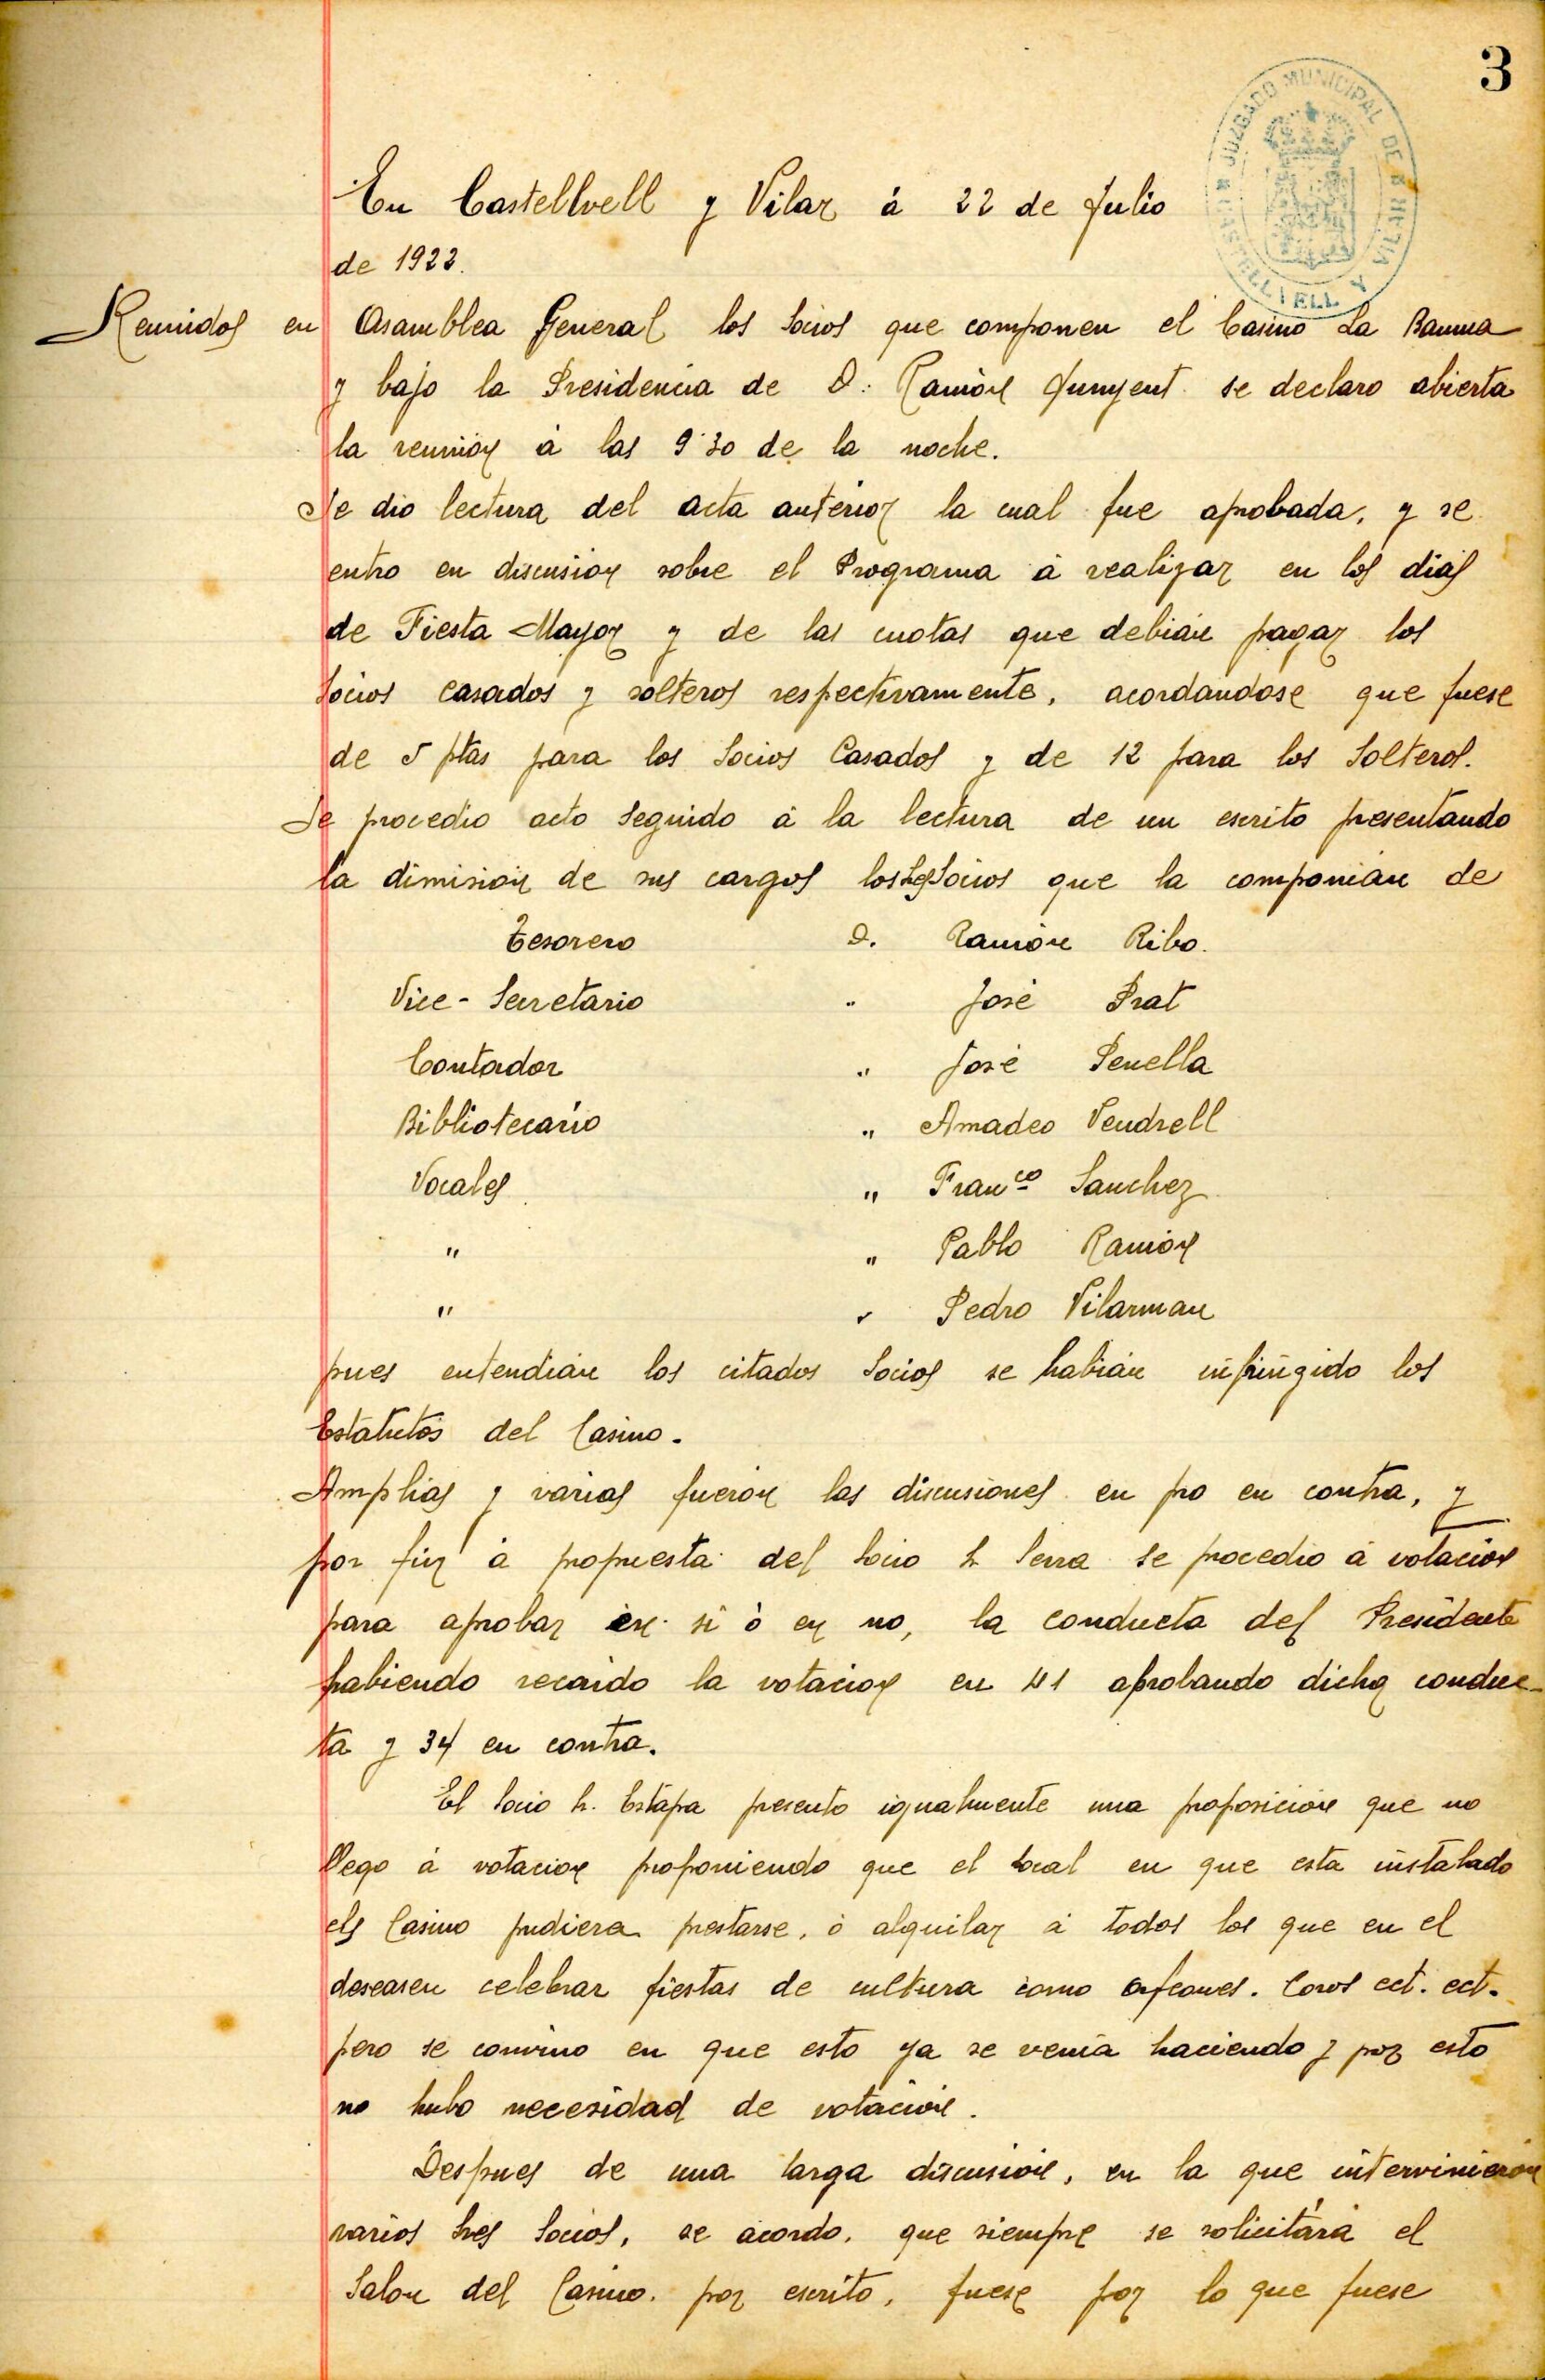 3
JUZGADO MUNICIPAL DE CASTELLVELL Y VILAR
En Castellvell y Vilar á 22 de Julio
de 1922.
Reunidos en Asamblea General los Socios que componen el Casino La Bauma
y bajo la Presidencia de D. Ramón Junyent se declaro abierta
la reunión á las 9'30 de la noche.
Se dio lectura del acta anterior la cual fue aprobada, y se
entro en discusion sobre el Programa á realizar en los dias
de Fiesta Mayor y de las cuotas que debian pagar los
Socios casados y solteros respectivamente, acordandose que fuese
de 5 ptas para los Socios Casados y de 12 para los Solteros.
Se procedio acto seguido á la lectura de un escrito presentando
la dimision de sus cargos los Sres Socios que la componian de
Tesorero D. Ramón Ribo.
Vice-Secretario " José Prat
Contador " José Penella
Bibliotecario " Amadeo Vendrell
Vocales " Franco Sanchez
" " Pablo Ramón
" " Pedro Vilarmau
pues entendian los citados Socios se habian infringido los
Estatutos del Casino.
Amplias y varias fueron las discusiones en pro en contra, y
por fin á propuesta del Socio Sr Serra se procedio á votacion
para aprobar en si ó en no, la conducta del Presidente
habiendo recaido la votacion en 41 aprobando dicha conduc-
ta y 34 en contra.
El Socio Sr. Estapa presento igualmente una proposicion que no
llego á votacion proponiendo que el local en que esta instalado
el Casino pudiera prestarse, ó alquilar á todos los que en el
deseasen celebrar fiestas de cultura como orfeones. Coros ect. ect.
pero se convino en que esto ya se venia haciendo y por esto
no hubo necesidad de votacion.
Despues de una larga discusion, en la que intervinieron
varios Sres Socios, se acordo, que siempre se solicitára el
Salon del Casino. por escrito, fuese por lo que fuese